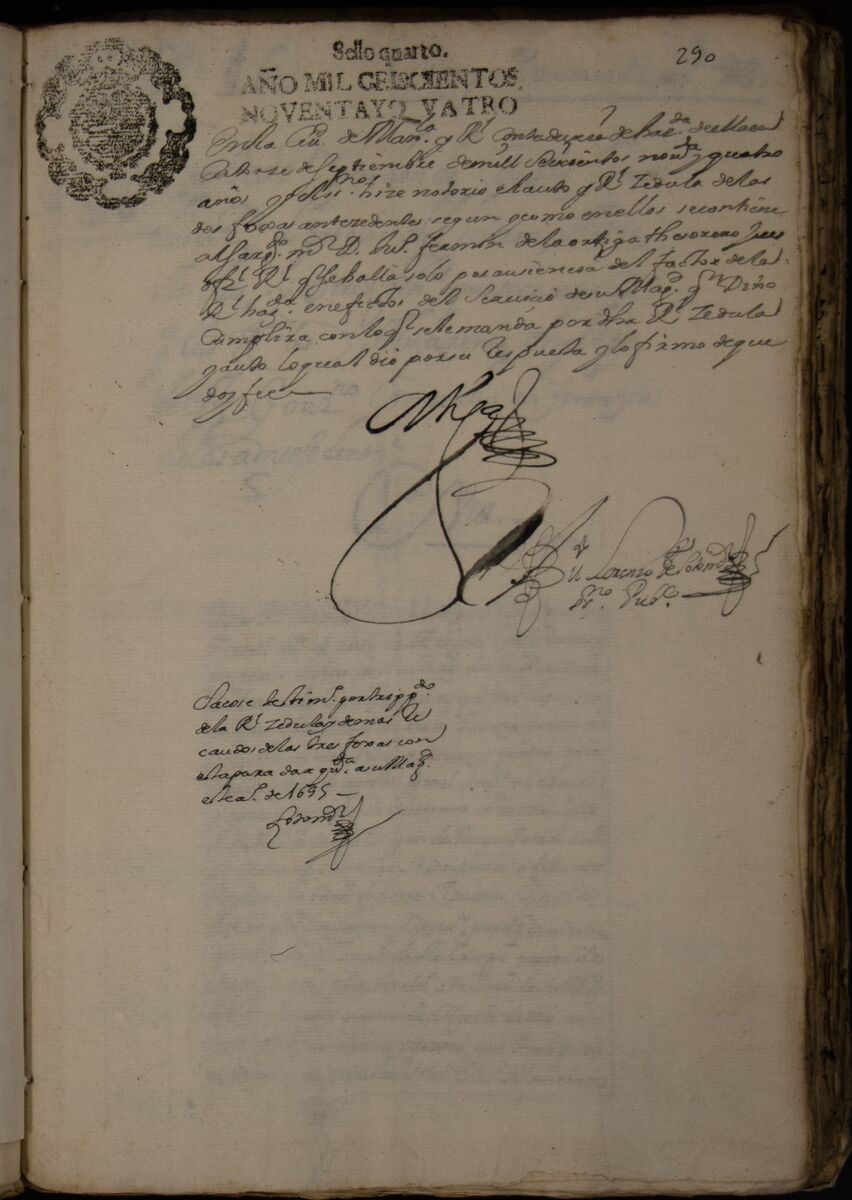 290
Sello quarto.
AÑO MIL CEISCIENTOS,
NOVENTAYQVATRO
En la Ciu.d de Man.la y Rl Contaduria de haz.da della en
Catorze de Septiembre de mill Seisientos nou.ta y quatro
años yo el ss.no hize notorio el auto y Rl Zedula de las
dos foxas antezedentes segun y como en ellos se contiene
al sarg.to m.or D. Ju.o fermin de la ortiga thesorero Juez
ofi.l Rl q se halla solo por ausiencia del factor de la
Rl haz.da en efectos del Seruicio de su Mag.d q.n Dixo
Cumplira con lo q se le manda por dha Rl Zedula
y auto lo qual dio por su respuesta y lo firmo de que
doy fee
Lorenzo
ss.no Pub.co
Sacose testim.o por trip.do
de la Rl Zedula y demas re
caudos de las tres foxas con
esta para dar q.ta a su Mag.d
este a.o de 1695